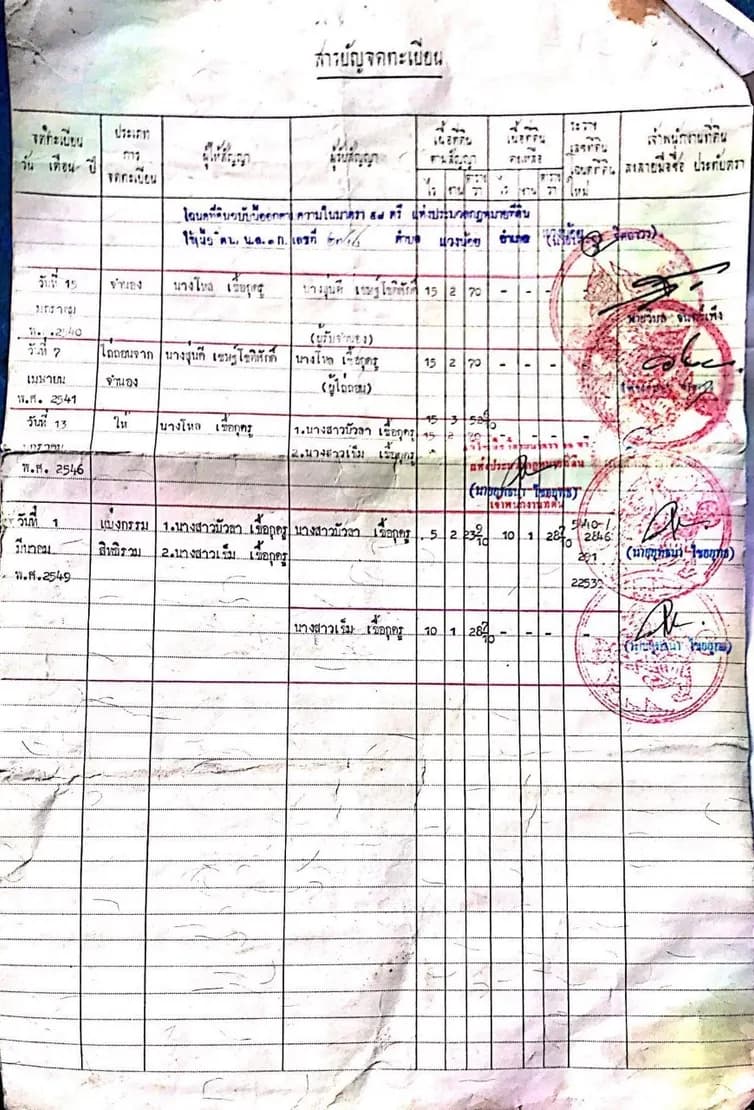 สารบัญจดทะเบียน
จดทะเบียน วัน เดือน ปี
ประเภท การ จดทะเบียน
ผู้ให้สัญญา
ผู้รับสัญญา
เนื้อที่ดิน ตามสัญญา
ไร่ งาน ตารางวา
เนื้อที่ดิน คงเหลือ
ไร่ งาน ตารางวา
ระวาง เลขที่ดิน โฉนดที่ดิน ใหม่
เจ้าพนักงานที่ดิน ลงลายมือชื่อ ประทับตรา
โฉนดที่ดินฉบับนี้ออกตามความในมาตรา ๕๘ ตรี แห่งประมวลกฎหมายที่ดิน
น.ส.๓ ก. เลขที่ ตำบล แวงน้อย อำเภอ
วันที่ 15 จำนอง นางไหล เชื้อกุดรู 15 2 70 - - -
มกราคม
พ.ศ.2540 (ผู้รับจำนอง)
วันที่ 7 ไถ่ถอนจาก นางไหล เชื้อกุดรู 15 2 70 - - -
เมษายน จำนอง (ผู้ไถ่ถอน)
พ.ศ. 2541
วันที่ 13 ให้ นางไหล เชื้อกุดรู 1.นางสาวบัวลา เชื้อกุดรู 15 3
มกราคม 2.นางสาวเข็ม เชื้อกุดรู
พ.ศ. 2546
แห่งประมวลกฎหมายที่ดิน
(นายยุทธนา ไชยยุทธ)
เจ้าพนักงานที่ดิน
วันที่ 1 แบ่งกรรม 1.นางสาวบัวลา เชื้อกุดรู นางสาวบัวลา เชื้อกุดรู 5 2 23 9/10 10 1 28 7/10
มีนาคม สิทธิรวม 2.นางสาวเข็ม เชื้อกุดรู 2846 (นายยุทธนา ไชยยุทธ)
พ.ศ.2549
นางสาวเข็ม เชื้อกุดรู 10 1 28 7/10 - - - -
(นายยุทธนา ไชยยุทธ)